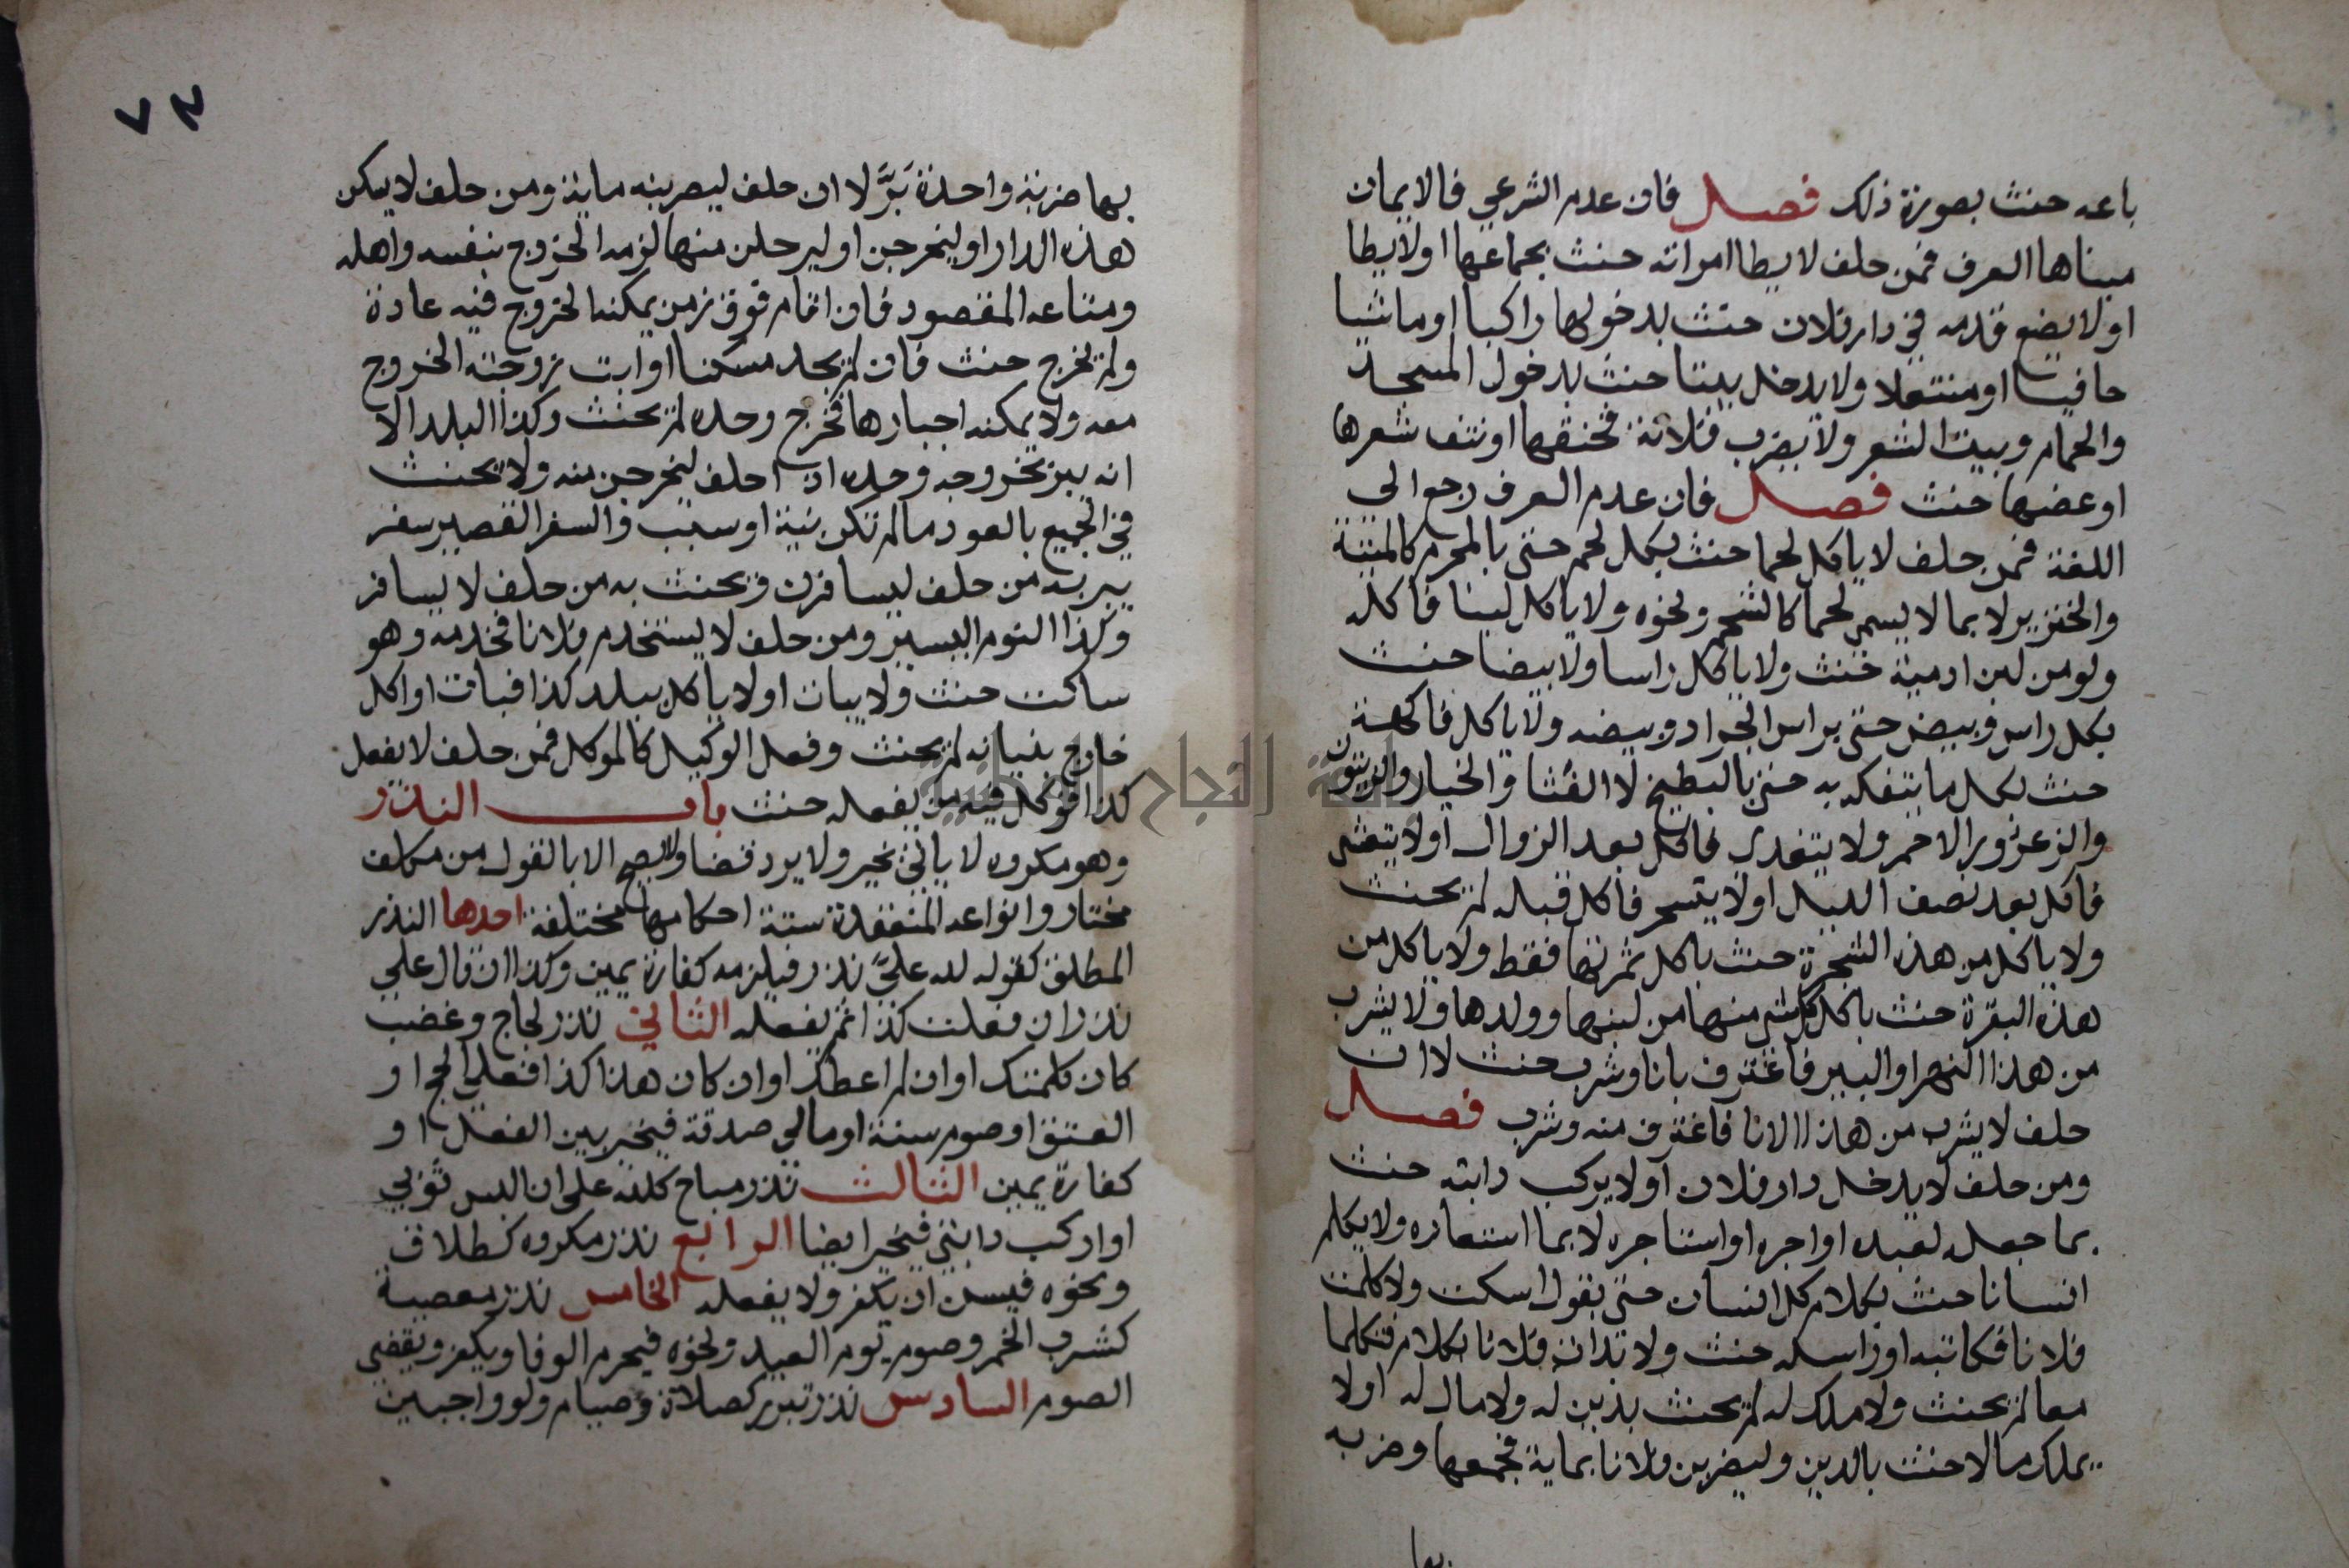 باعه حنث بصورة ذلك فصل فان عدم الشرعي فالايمان
مبناها العرف فمن حلف لا يطا امراته حنث بجماعها او لا يطا
او لا يضع قدمه في دار فلان حنث بدخولها راكبا او ماشيا
حافيا او منتعلا ولا يدخل بيتا حنث بدخول المسجد
والحمام وبيت الشعر ولا يضرب فلانة فخنقها او نتف شعرها
او عضها حنث فصل فان عدم العرف رجع الى
اللغة فمن حلف لا ياكل لحما حنث بكل لحم حتى بالمحرم كالميتة
والخنزير لا بما لا يسمى لحما كالشحم ونحوه ولا ياكل لبنا فاكله
ولو من لبن ادمية حنث ولا ياكل راسا ولا بيضا حنث
بكل راس وبيض حتى براس الجراد وبيضه ولا ياكل فاكهة
حنث بكل ما يتفكه به حتى بالبطيخ لا القثا والخيار والزيتون
والزعرور الاحمر ولا يتغدى فاكل بعد الزوال او لا يتعشى
فاكل بعد نصف الليل او لا يتسحر فاكل قبله لم يحنث
ولا ياكل من هذه الشجرة حنث باكل ثمرتها فقط ولا ياكل من
هذه البقرة حنث باكل كل شي منها من لبنها وولدها ولا يشرب
من هذا النهر او البير فاغترف بانا وشرب حنث لا ان
حلف لا يشرب من هذا الانا فاغترف منه وشرب فصل
ومن حلف لا يدخل دار فلان او لا يركب دابته حنث
بما جعله لعبده او اجره او استاجره لا بما استعاره ولا يكلم
انسانا حنث بكلام كل انسان حتى بقول اسكت ولا كلمت
فلانا فكاتبه او راسله حنث ولا بدات فلانا بكلام فتكلما
معا لم يحنث ولا ملك له لم يحنث بدين له ولا مال له او لا
يملك مالا حنث بالدين وليضربن فلانا بماية فجمعها وضربه
بها
٧٣
بها ضربة واحدة بَرَّ لا ان حلف ليضربنه ماية ومن حلف لا يسكن
هذه الدار او ليخرجن او ليرحلن منها لزمه الخروج بنفسه واهله
ومتاعه المقصود فان اقام فوق زمن يمكنه الخروج فيه عادة
ولم يخرج حنث فان لم يجد مسكنا او ابت زوجته الخروج
معه ولا يمكنه اجبارها فخرج وحده لم يحنث وكذا البلد الا
انه يبر بخروجه وحده اذا حلف ليخرجن منه ولا يحنث
في الجميع بالعود ما لم تكن نية او سبب والسفر القصير سفر
يبر به من حلف ليسافرن ويحنث به من حلف لا يسافر
وكذا النوم اليسير ومن حلف لا يستخدم فلانا فخدمه وهو
ساكت حنث ولا يبات او لا ياكل ببلد كذا فبات او اكل
خارج بنيانه لم يحنث وفعل الوكيل كالموكل فمن حلف لا يفعل
كذا فوكل فيه من يفعله حنث باب النذر
وهو مكروه لا ياتي بخير ولا يرد قضا ولا يصح الا بالقول من مكلف
مختار وانواعه المنعقدة ستة احكامها مختلفة احدها النذر
المطلق كقوله لله عليَّ نذر فيلزمه كفارة يمين وكذا ان قال علي
نذر ان فعلت كذا ثم يفعله الثاني نذر لجاج وغضب
كان كلمتك او ان لم اعطك او ان كان هذا كذا فعلي الحج او
العتق او صوم سنة او مالي صدقة فيخير بين الفعل او
كفارة يمين الثالث نذر مباح كلله علي ان البس ثوبي
او اركب دابتي فيخير ايضا الرابع نذر مكروه كطلاق
ونحوه فيسن ان يكفر ولا يفعله الخامس نذر معصية
كشرب الخمر وصوم يوم العيد ونحوه فيحرم الوفا ويكفر ويقضي
الصوم السادس نذر تبرر كصلاة وصيام ولو واجبين
جامعة النجاح الوطنية